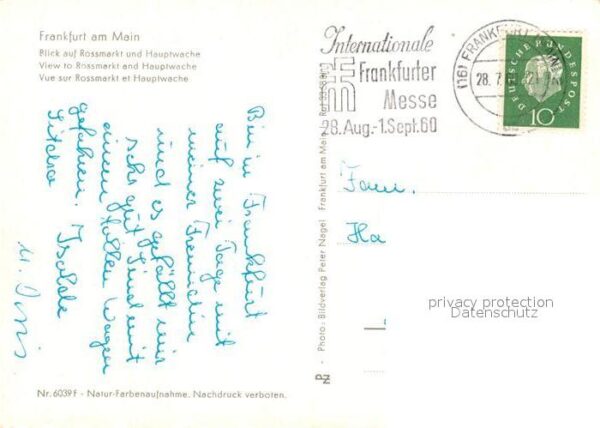 Frankfurt am Main
Blick auf Rossmarkt und Hauptwache
View to Rossmarkt and Hauptwache
Vue sur Rossmarkt et Hauptwache
Internationale
Frankfurter
Messe
28. Aug.-1. Sept. 60
(16) FRANKFURT
28. 7.
DEUTSCHE BUNDESPOST
10
Bin in Frankfurt
auf zwei Tage mit
meiner Freundin
und es gefällt mir
sehr gut. Sind mit
einem tollen Wagen
gefahren. Isolde
Fam.
Ha
privacy protection
Datenschutz
Photo: Bildverlag Peter Nagel · Frankfurt am Main
Nr. 6039f - Natur-Farbenaufnahme. Nachdruck verboten.